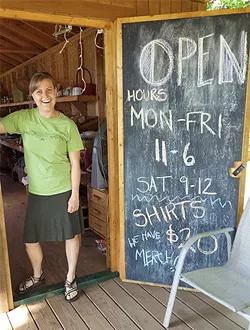 OPEN
HOURS
MON-FRI
11-6
SAT 9-12
SHIRTS
WE HAVE $2
MERCH